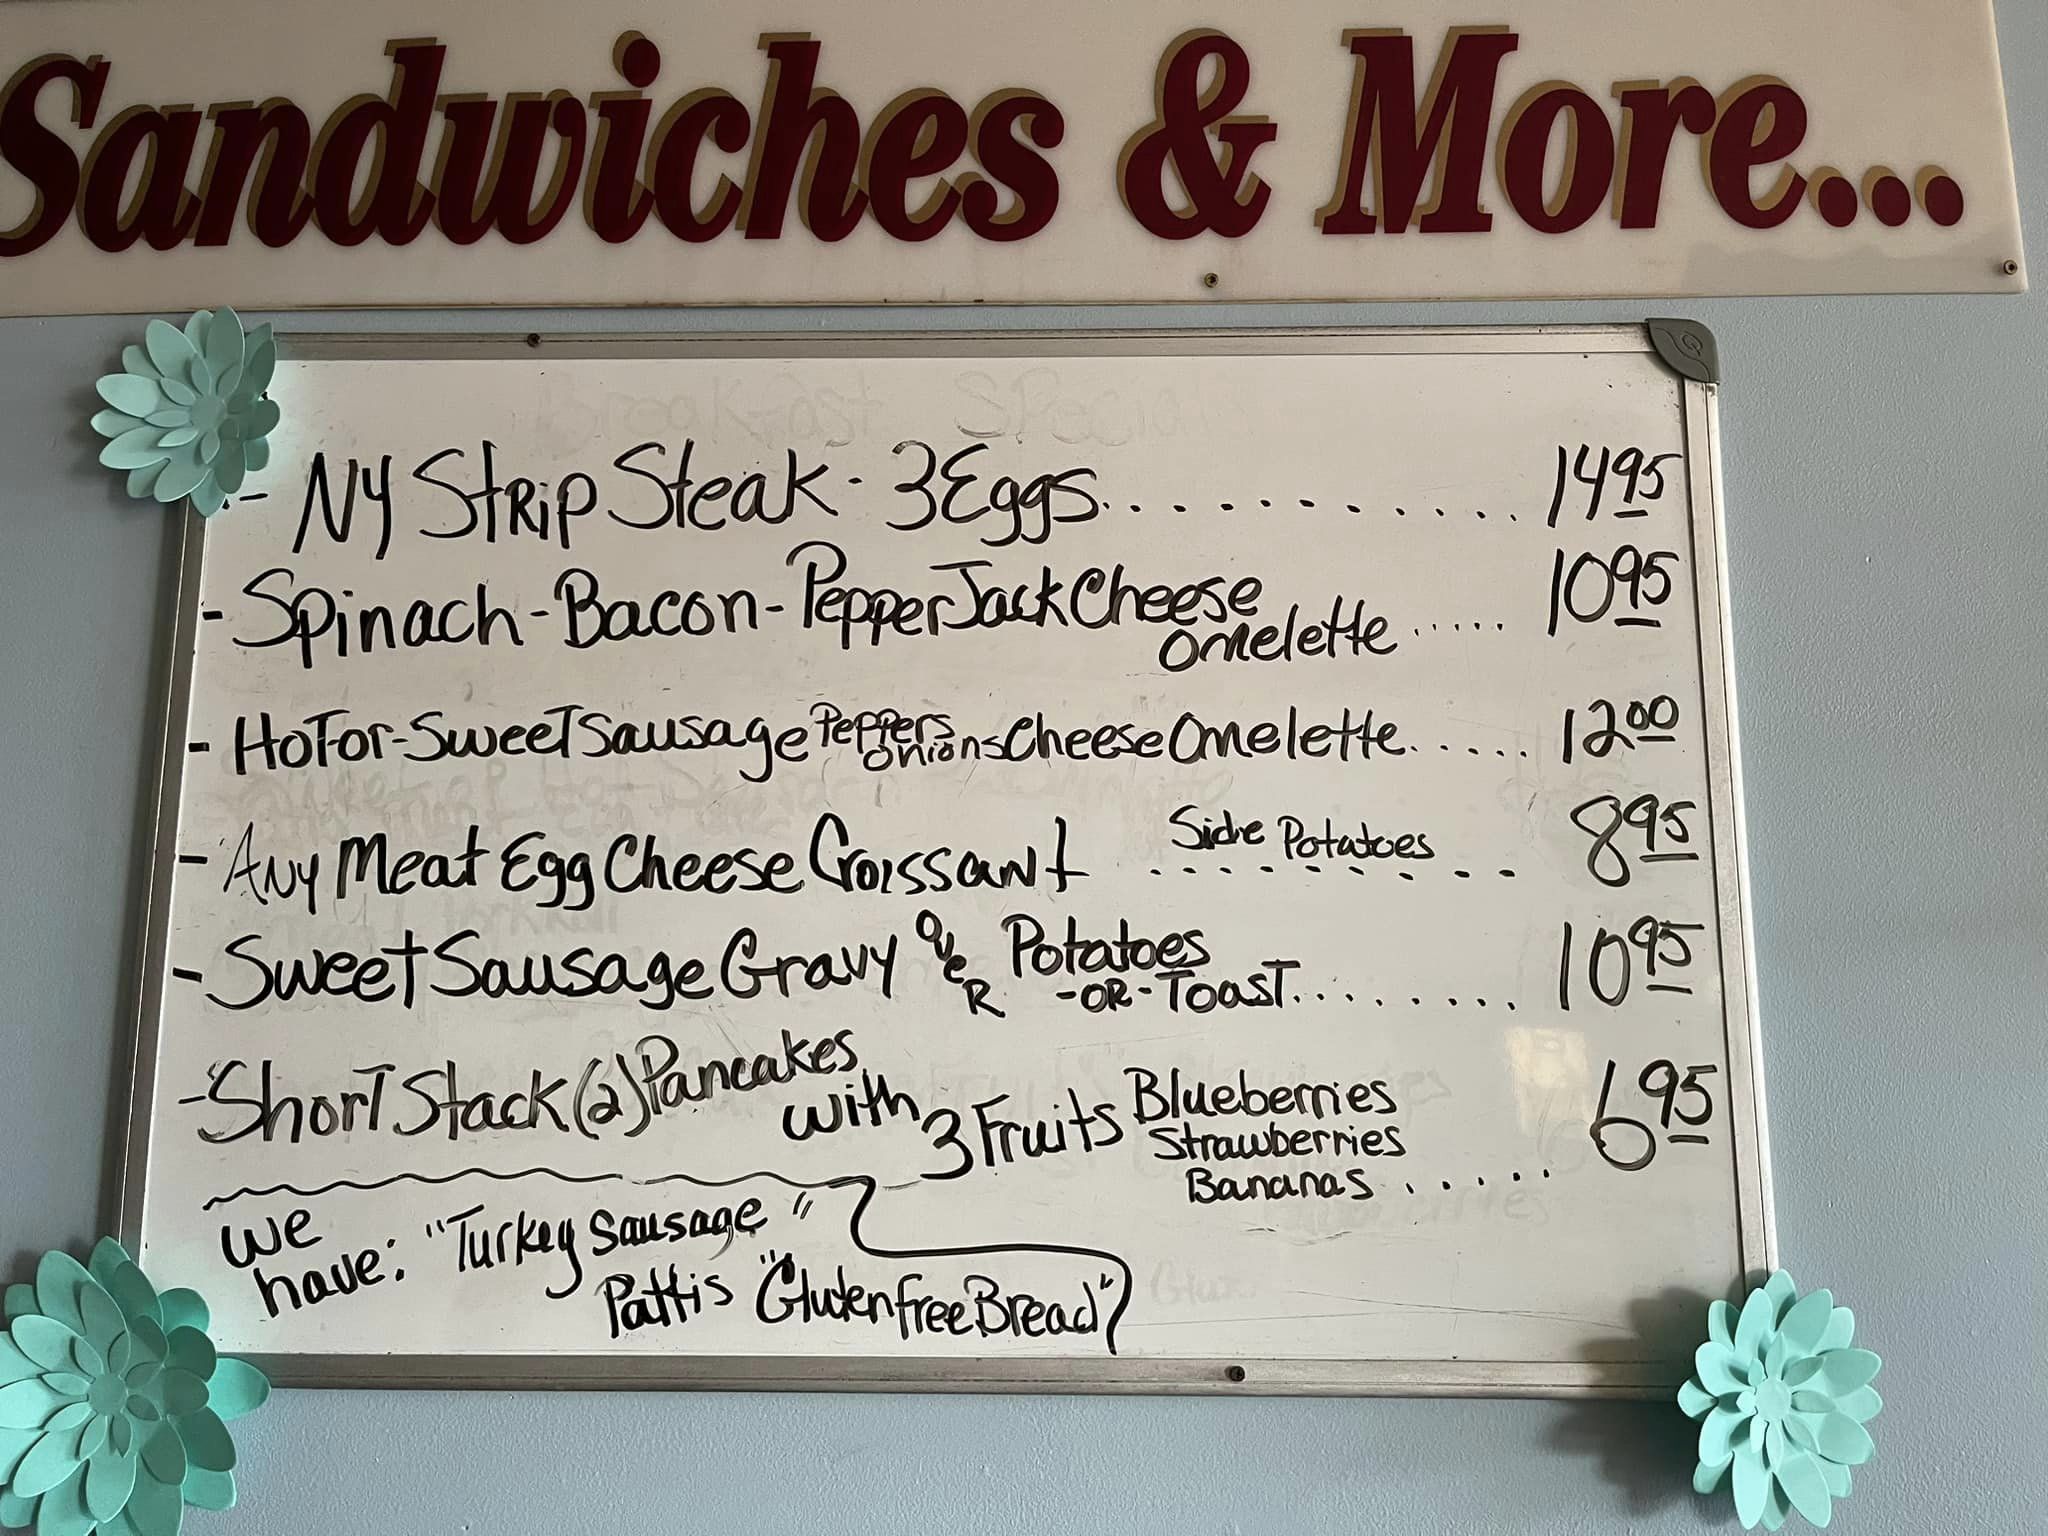 Sandwiches & More...
Breakfast Specials
- NY Strip Steak - 3 Eggs............ 14 95
- Spinach - Bacon - Pepper Jack Cheese Omelette ..... 10 95
- Hot-or-Sweet Sausage Peppers Onions Cheese Omelette..... 12 00
- Any Meat Egg Cheese Croissant Side Potatoes ......... 8 95
- Sweet Sausage Gravy over Potatoes -OR- Toast........ 10 95
- Short Stack (2) Pancakes with 3 Fruits Blueberries
Strawberries
Bananas ..... 6 95
We have: "Turkey Sausage"
Pattis "Gluten free Bread"